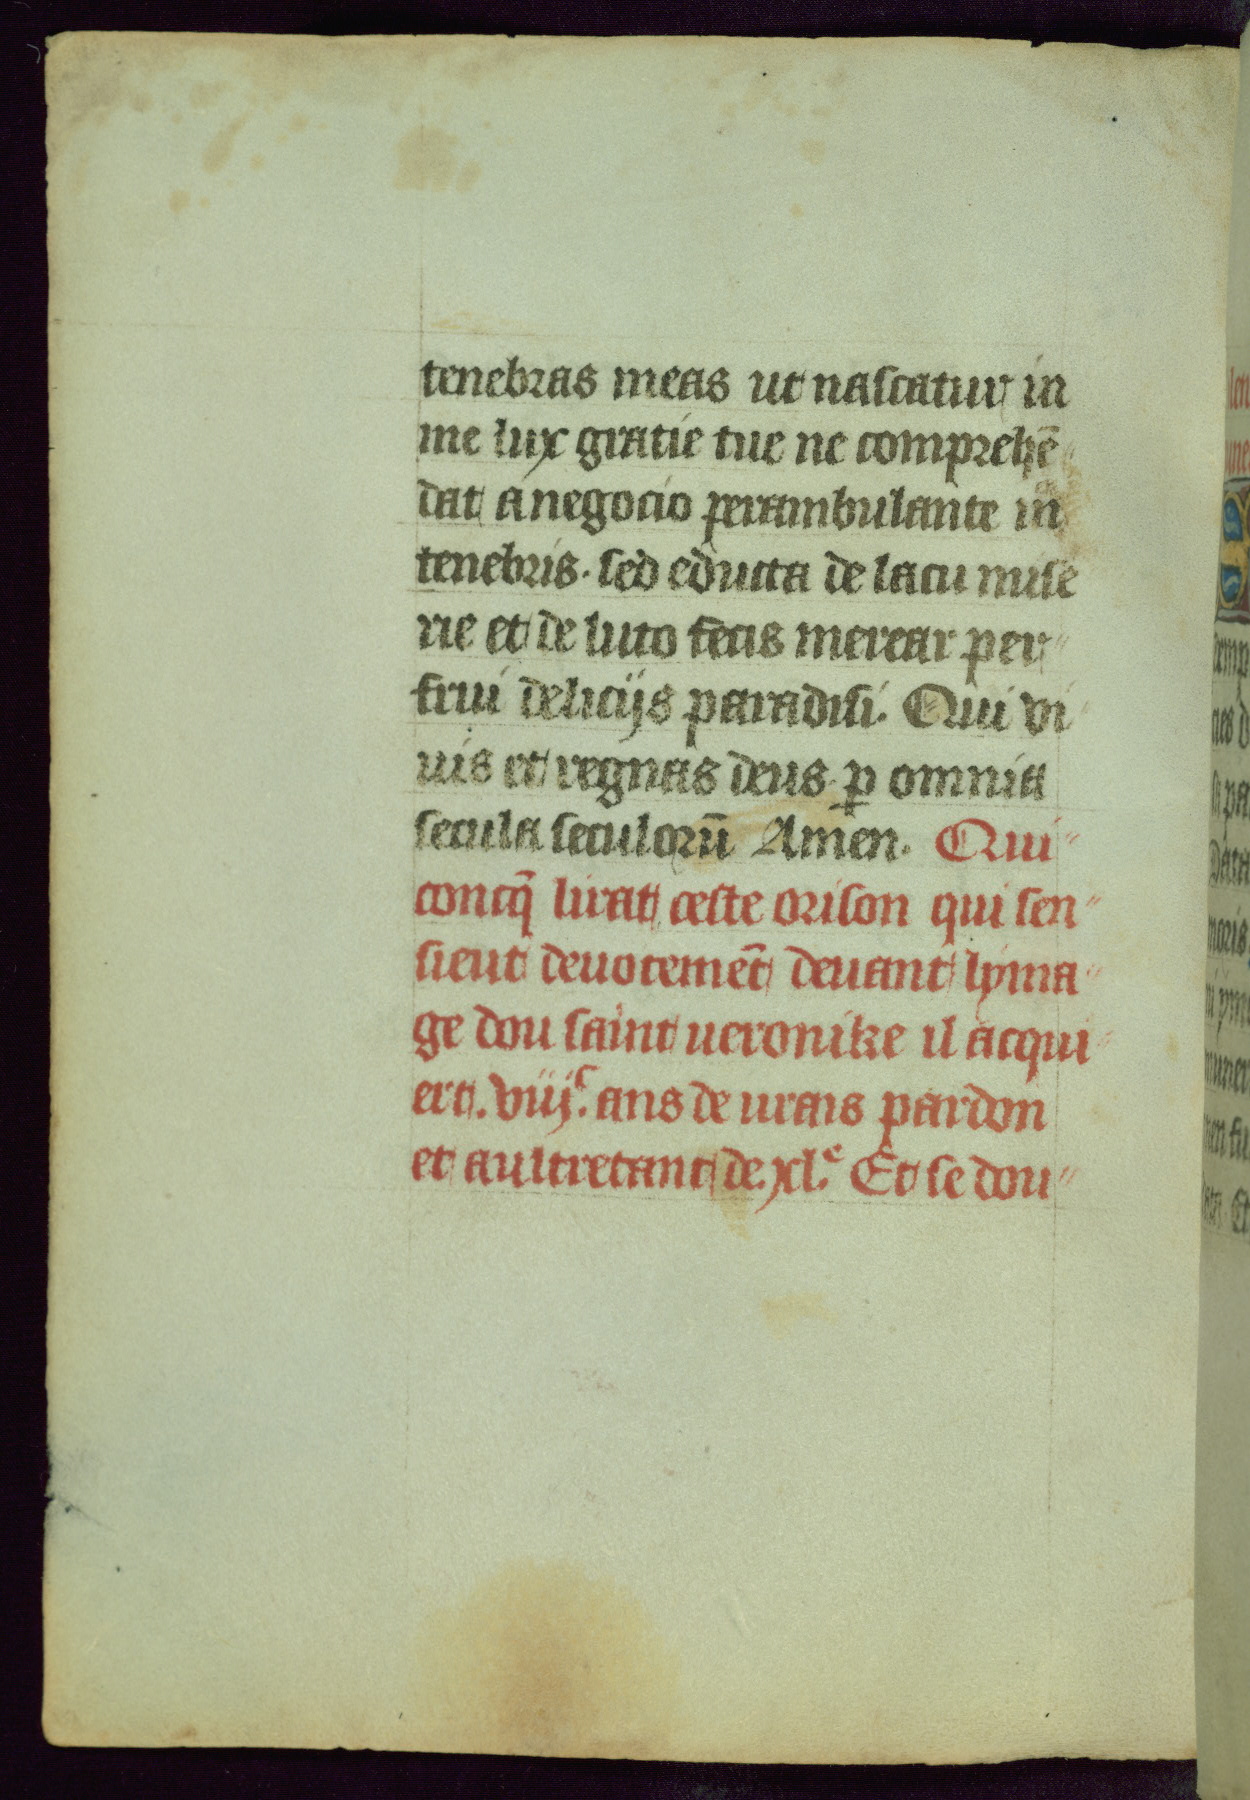 tenebras meas ut nascatur in
me lux gratie tue ne comprehē
dat a negocio perambulante in
tenebris. sed educta de lacu mise
rie et de luto fecis merear per
frui delicijs paradisi. Qui vi
uis et regnas deus ꝑ omnia
secula seculorū Amen. Qui
concq̄ lirat ceste orison qui sen
sieut deuotemēt deuant lyma
ge dou saint ueronike il acqui
ert. viijͨ. ans de urais pardon
et aultretant de. xl.ͤ Et se dou